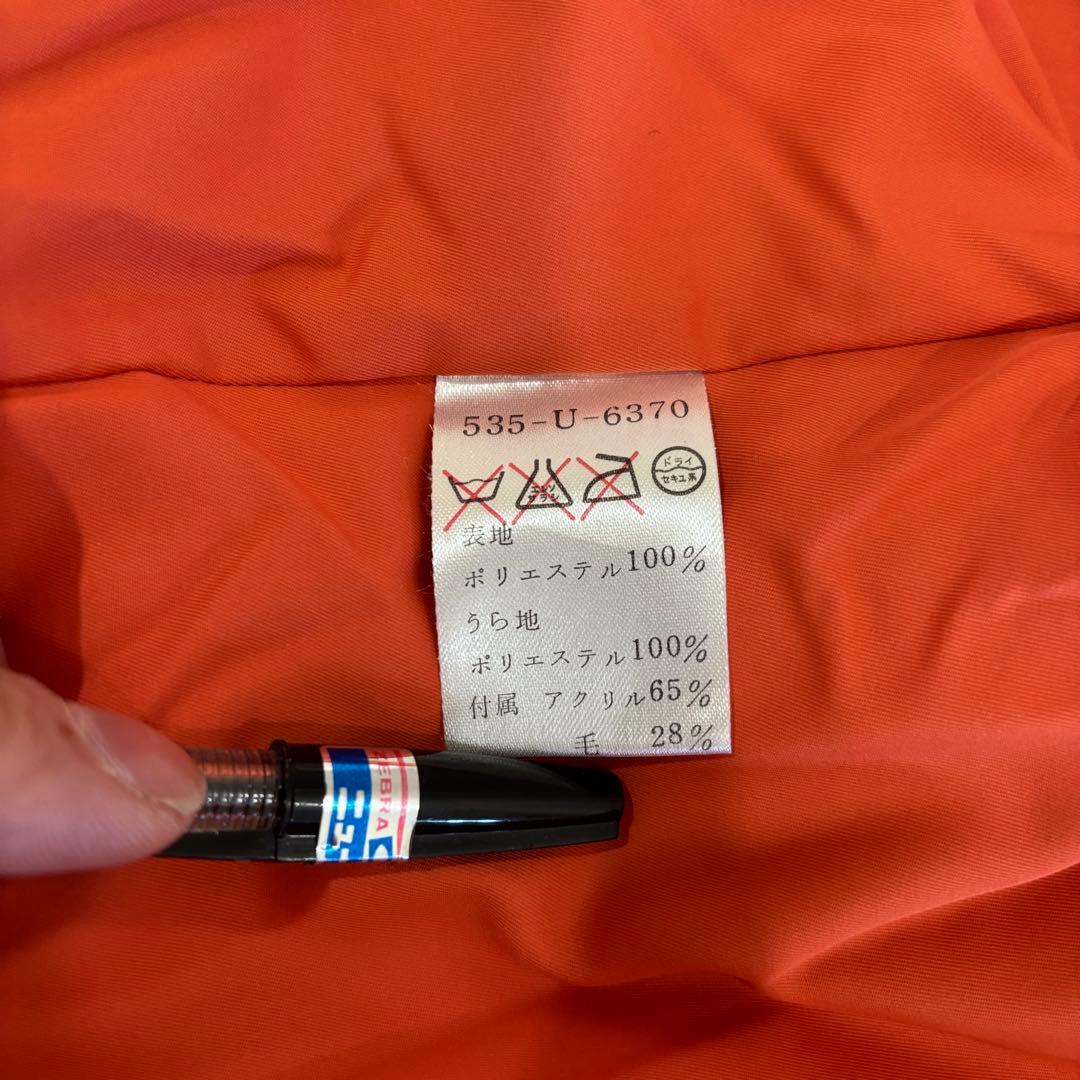 535-U-6370
エンソ
サラシ
ドライ
セキユ系
表地
ポリエステル100%
うら地
ポリエステル100%
付属 アクリル65%
毛 28%
ZEBRA